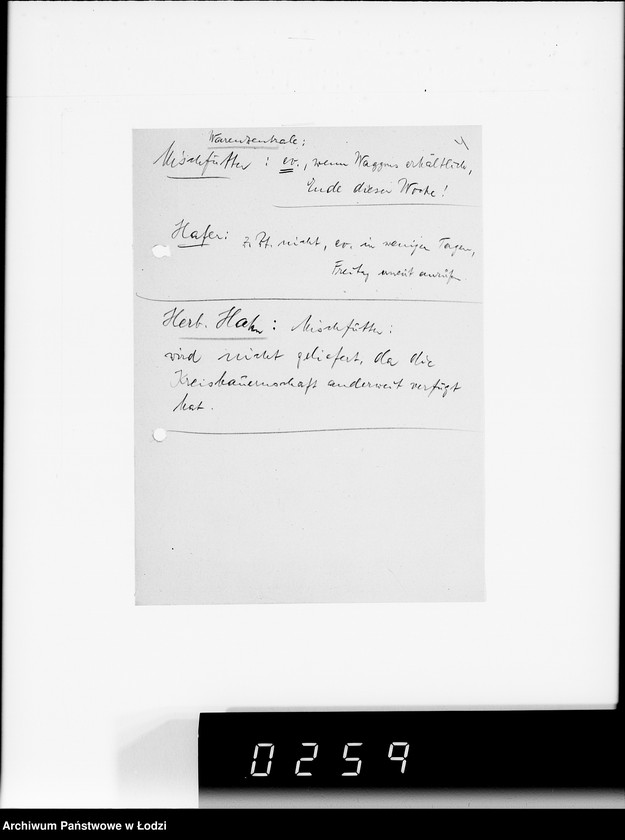 Warenzentrale:
Mischfutter : ev., wenn Waggons erhältlich,
Ende dieser Woche!
Hafer: z. Zt. nicht, ev. in wenigen Tagen,
Freitag erneut anrufen.
Herb. Hahn: Mischfutter:
wird nicht geliefert, da die
Kreisbauernschaft anderweit verfügt
hat.
0259
Archiwum Państwowe w Łodzi